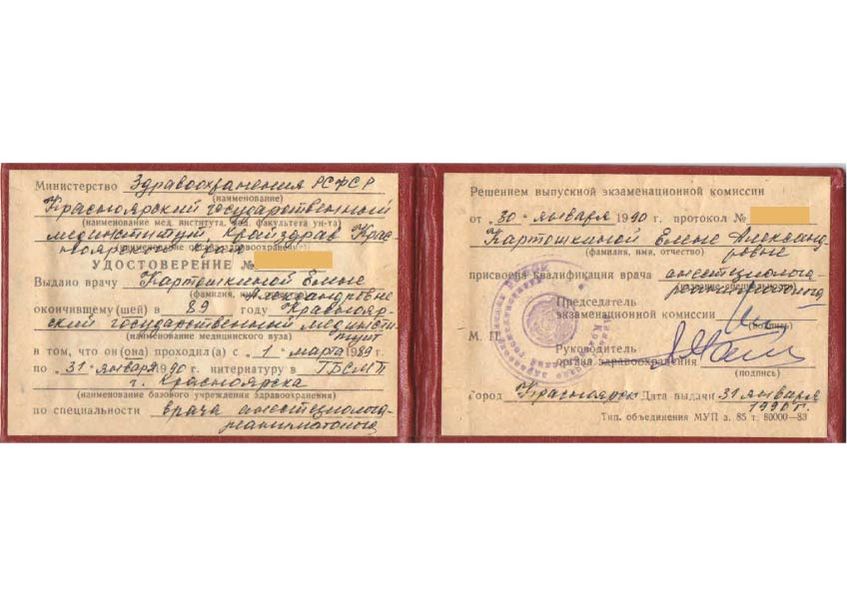 Министерство Здравоохранения РСФСР
(наименование)
Красноярский государственный
(наименование мед. института, мед. факультета ун-та)
мединститут Крайздрав Крас-
ноярского края
(наименование органа здравоохранения)
УДОСТОВЕРЕНИЕ №
Выдано врачу Картошкиной Елене
(фамилия, имя, отчество)
Александровне
окончившему (шей) в 89 году Краснояр-
ский государственный мединсти-
тут
(наименование медицинского вуза)
в том, что он (она) проходил(а) с 1 марта 1989 г.
по 31 января 1990 г. интернатуру в ГБСМП
г. Красноярска
(наименование базового учреждения здравоохранения)
по специальности врача анестезиолога-
реаниматолога
Решением выпускной экзаменационной комиссии
от 30 января 1990 г. протокол №
Картошкиной Елене Александ-
ровне
(фамилия, имя, отчество)
присвоена квалификация врача анестезиолога-
реаниматолога
Председатель
экзаменационной комиссии
(подпись)
М. П.
Руководитель
органа здравоохранения
(подпись)
Город Красноярск Дата выдачи 31 января
1990 г.
Тип. объединения МУП з. 85 т. 80000—83